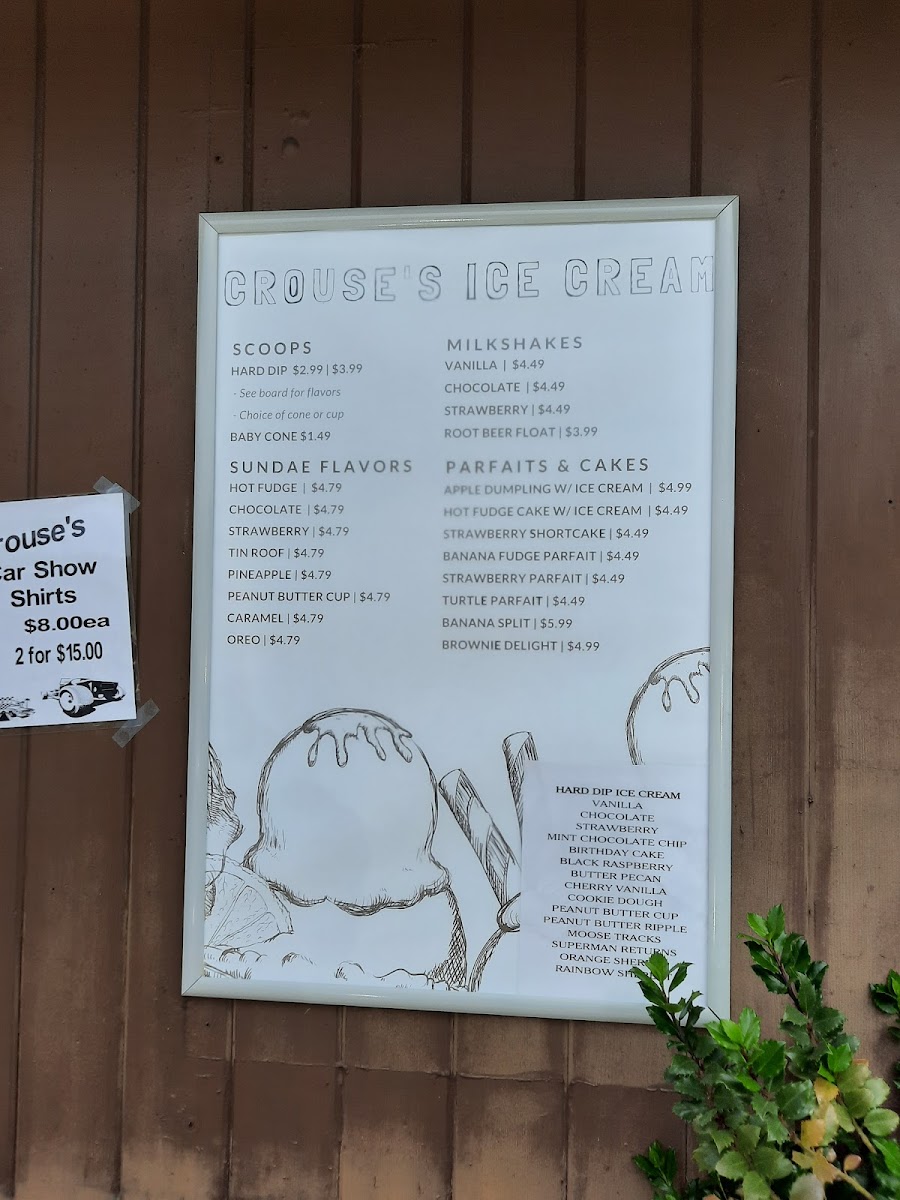 CROUSE'S ICE CREAM
SCOOPS
HARD DIP $2.99 | $3.99
- See board for flavors
- Choice of cone or cup
BABY CONE $1.49
SUNDAE FLAVORS
HOT FUDGE | $4.79
CHOCOLATE | $4.79
STRAWBERRY | $4.79
TIN ROOF | $4.79
PINEAPPLE | $4.79
PEANUT BUTTER CUP | $4.79
CARAMEL | $4.79
OREO | $4.79
MILKSHAKES
VANILLA | $4.49
CHOCOLATE | $4.49
STRAWBERRY | $4.49
ROOT BEER FLOAT | $3.99
PARFAITS & CAKES
APPLE DUMPLING W/ ICE CREAM | $4.99
HOT FUDGE CAKE W/ ICE CREAM | $4.49
STRAWBERRY SHORTCAKE | $4.49
BANANA FUDGE PARFAIT | $4.49
STRAWBERRY PARFAIT | $4.49
TURTLE PARFAIT | $4.49
BANANA SPLIT | $5.99
BROWNIE DELIGHT | $4.99
HARD DIP ICE CREAM
VANILLA
CHOCOLATE
STRAWBERRY
MINT CHOCOLATE CHIP
BIRTHDAY CAKE
BLACK RASPBERRY
BUTTER PECAN
CHERRY VANILLA
COOKIE DOUGH
PEANUT BUTTER CUP
PEANUT BUTTER RIPPLE
MOOSE TRACKS
SUPERMAN RETURNS
ORANGE
RAINBOW
rouse's
ar Show
Shirts
$8.00ea
2 for $15.00